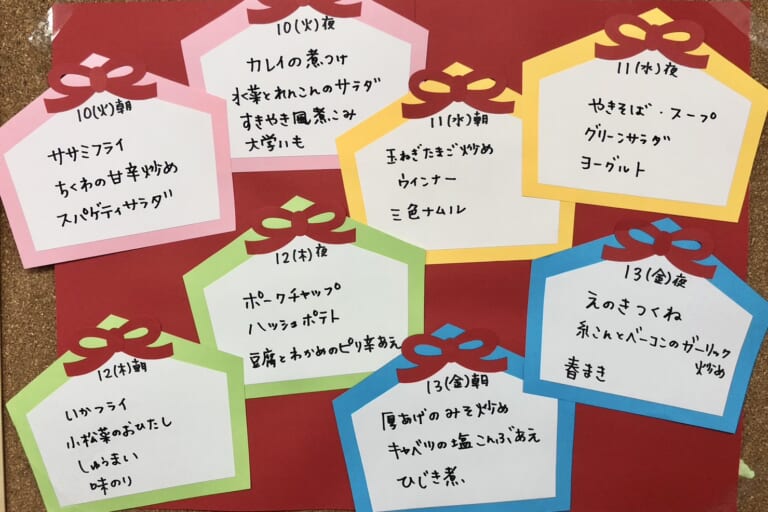 10(火)朝
ササミフライ
ちくわの甘辛炒め
スパゲティサラダ
10(火)夜
カレイの煮つけ
水菜とれんこんのサラダ
すきやき風煮こみ
大学いも
11(水)朝
玉ねぎたまご炒め
ウィンナー
三色ナムル
11(水)夜
やきそば・スープ
グリーンサラダ
ヨーグルト
12(木)朝
いかフライ
小松菜のおひたし
しゅうまい
味のり
12(木)夜
ポークチャップ
ハッシュポテト
豆腐とわかめのピリ辛あえ
13(金)朝
厚あげのみそ炒め
キャベツの塩こんぶあえ
ひじき煮
13(金)夜
えのきつくね
糸こんとベーコンのガーリック
炒め
春まき